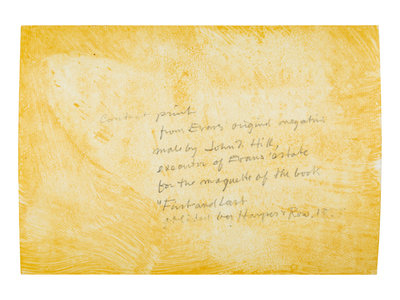 Contact print
from Evans original negative
made by John T. Hill,
executor of Evans estate
for the maquette of the book
"First and Last
by Harper & Row,